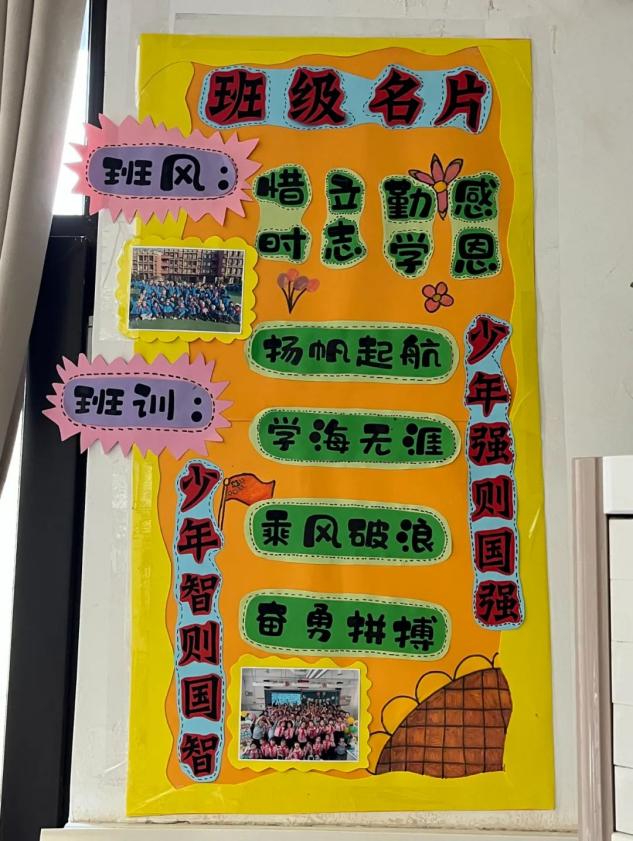 班级名片
班风:
惜时 立志 勤学 感恩
班训:
扬帆起航
学海无涯
乘风破浪
奋勇拼搏
少年智则国智
少年强则国强